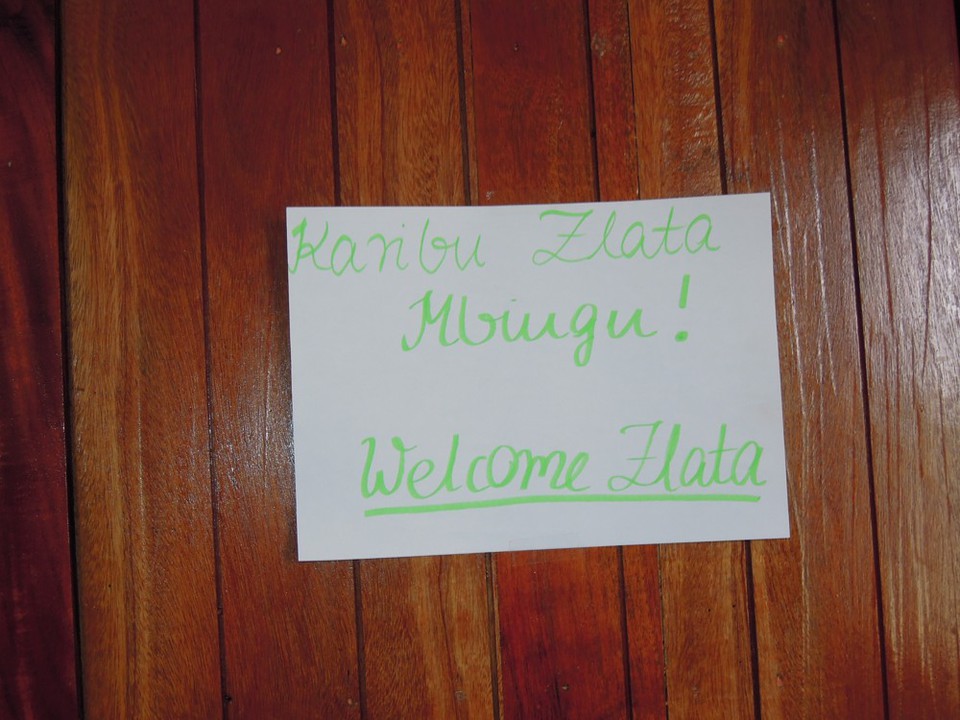 Karibu Zlata
Mbingu!
Welcome Zlata